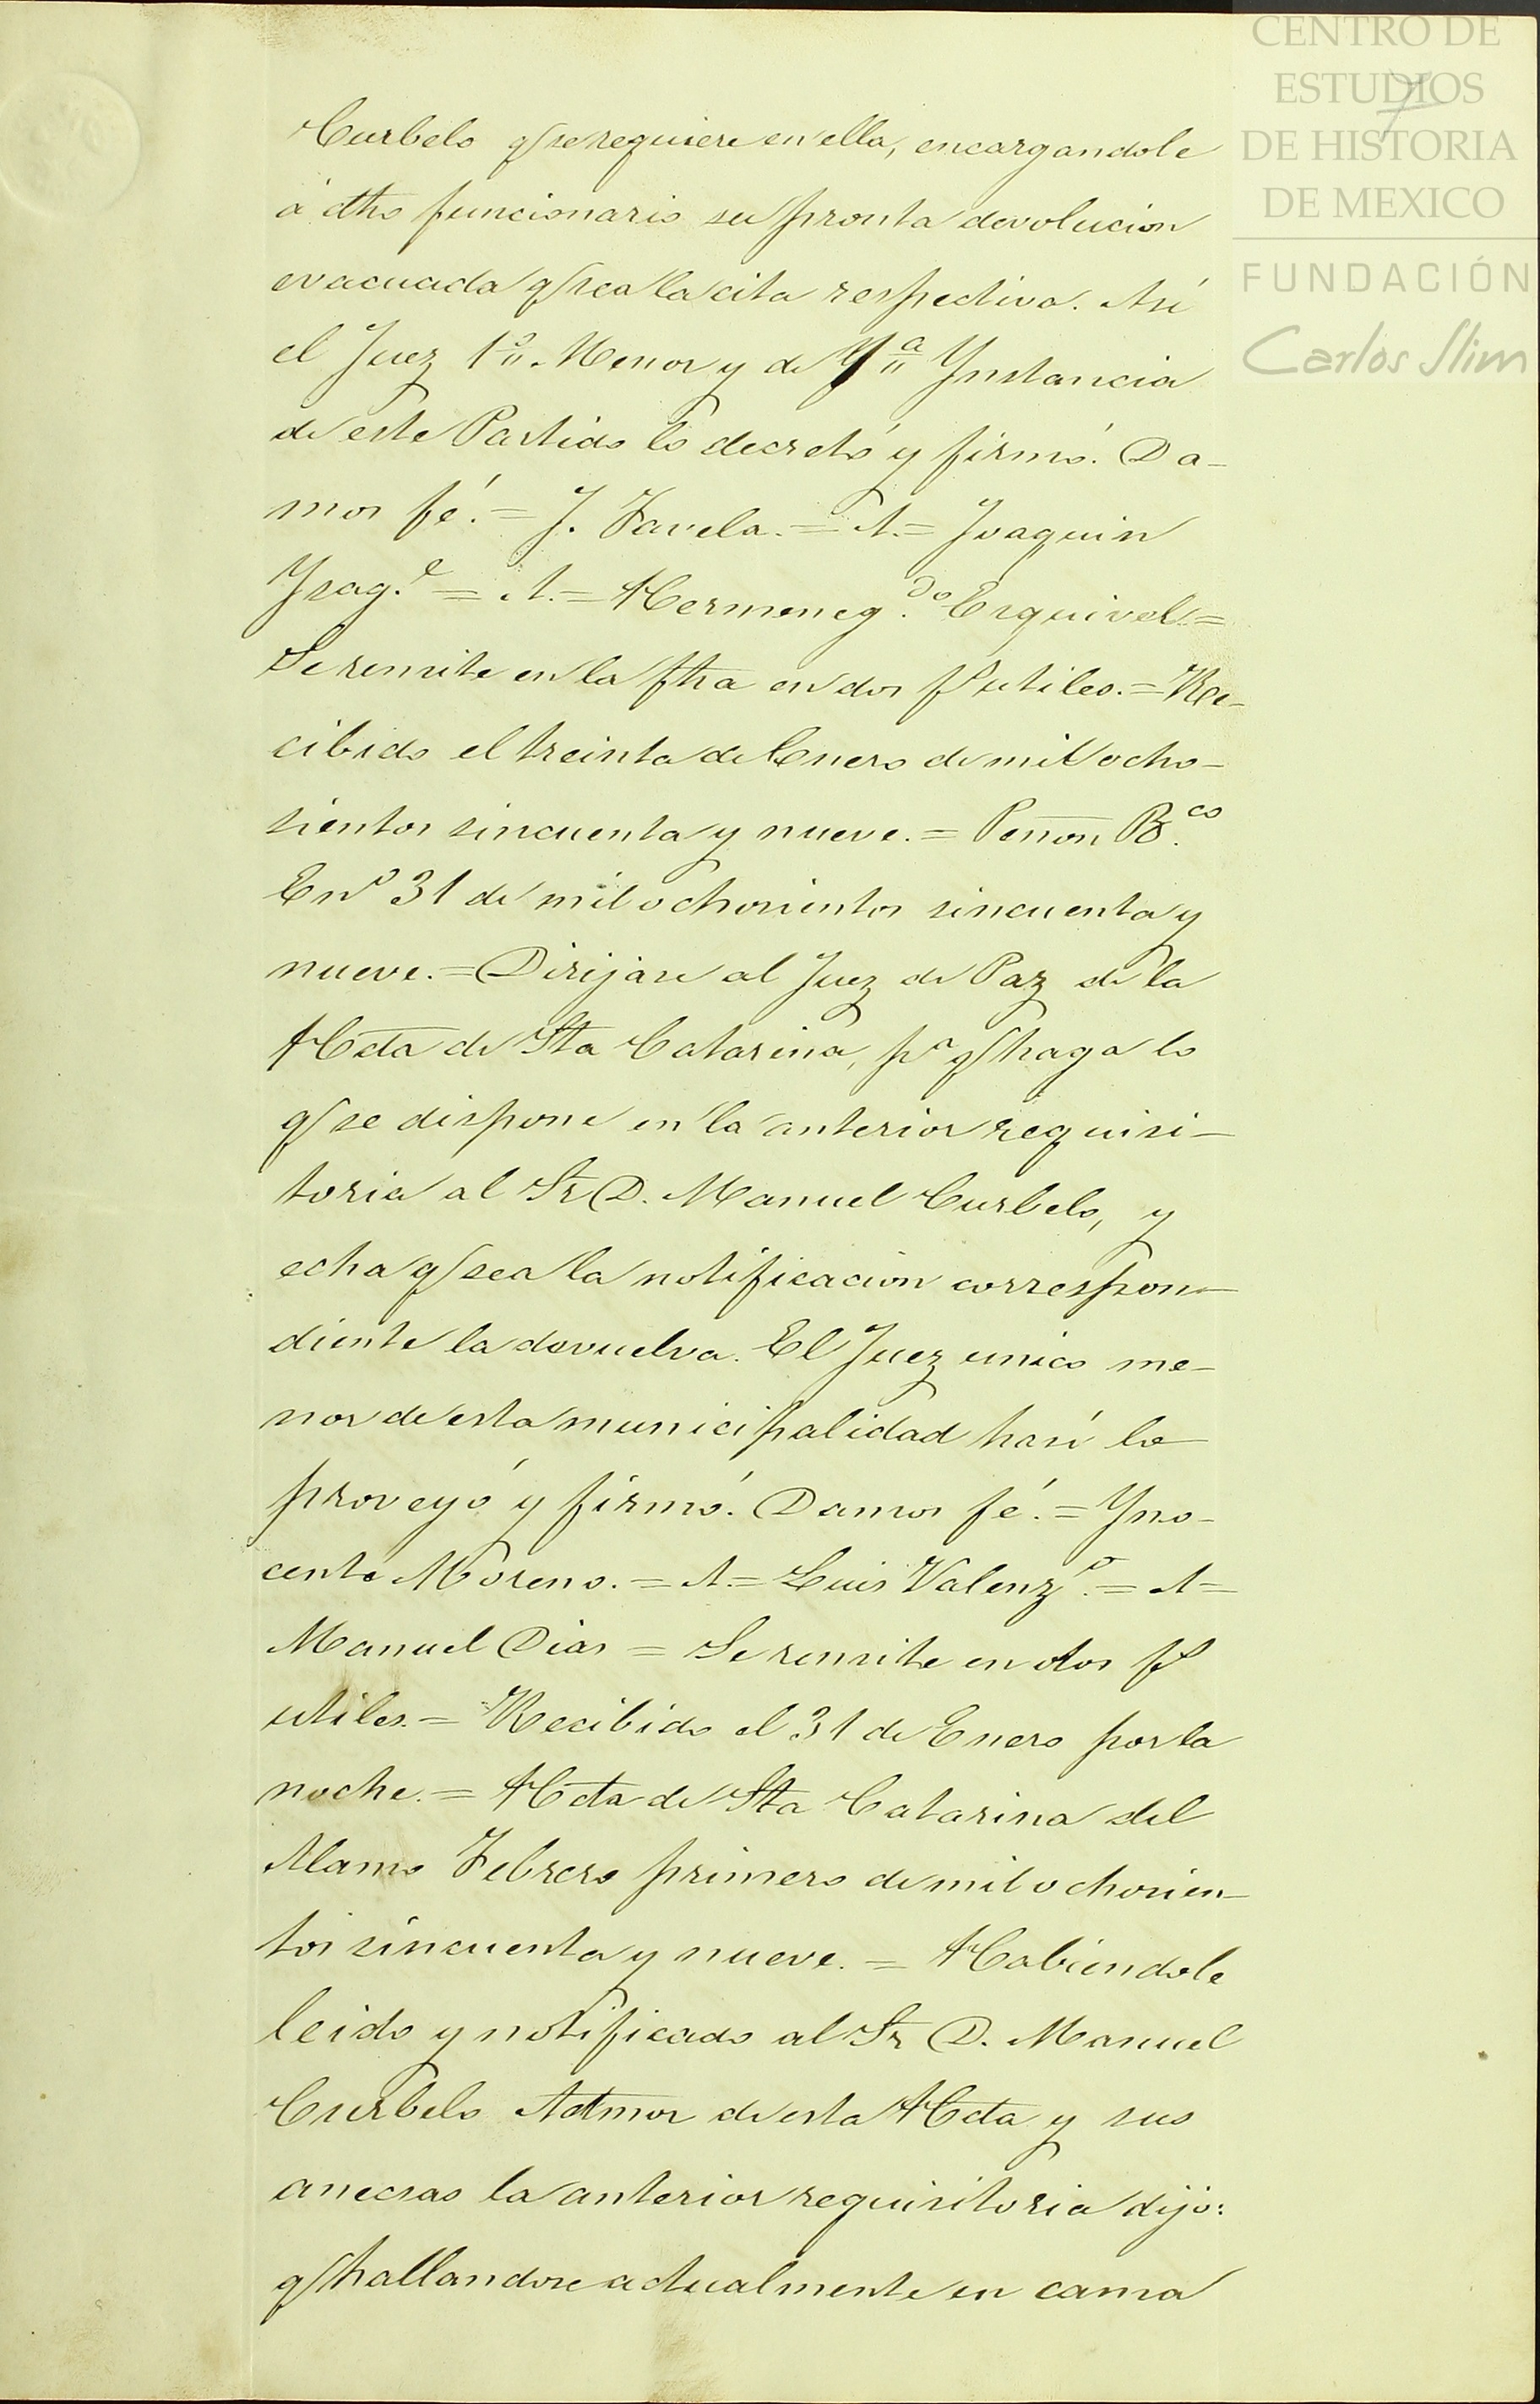 CENTRO DE
ESTUDIOS
DE HISTORIA
DE MEXICO
FUNDACIÓN
Carlos Slim
7
Curbelo q/ se requiere en ella, encargandole
á dho funcionario su pronta devolucion
evacuada q/ sea la cita respectiva. Así
el Juez 1º Menor y de 1ª Ynstancia
de este Partido lo decretó y firmó. Da-
mos fé. = J. Favela. = A. = Joaquin
Ysag.e = A. = Hermeneg.do Esquivel =
Se remite en la fha en dos fs utiles. = Re-
cibido el treinta de Enero de mil ocho-
sientos sincuenta y nueve. = Peñon B.co
Enº 31 de mil ochosientos sincuenta y
nueve. = Dirijase al Juez de Paz de la
Hcda de Sta Catarina, pª q/ haga lo
q/ se dispone en la anterior requisi-
toria al Sr D. Manuel Curbelo, y
echa q/ sea la notificacion correspon-
diente la devuelva. El Juez unico me-
nor de esta municipalidad hasí lo
proveyó y firmó. Damos fé. = Yno-
cente Moreno. = A. = Luis Valenz.º = A =
Manuel Dias = Se remite en dos fs
utiles. = Recibido el 31 de Enero por la
noche. = Hcda de Sta Catarina del
Alamo Febrero primero de mil ochosien-
tos sincuenta y nueve. = Habiendole
leido y notificado al Sr D. Manuel
Curbelo Admor de esta Hcda y sus
anecsas la anterior requisitoria dijo:
q/ hallandose actualmente en cama